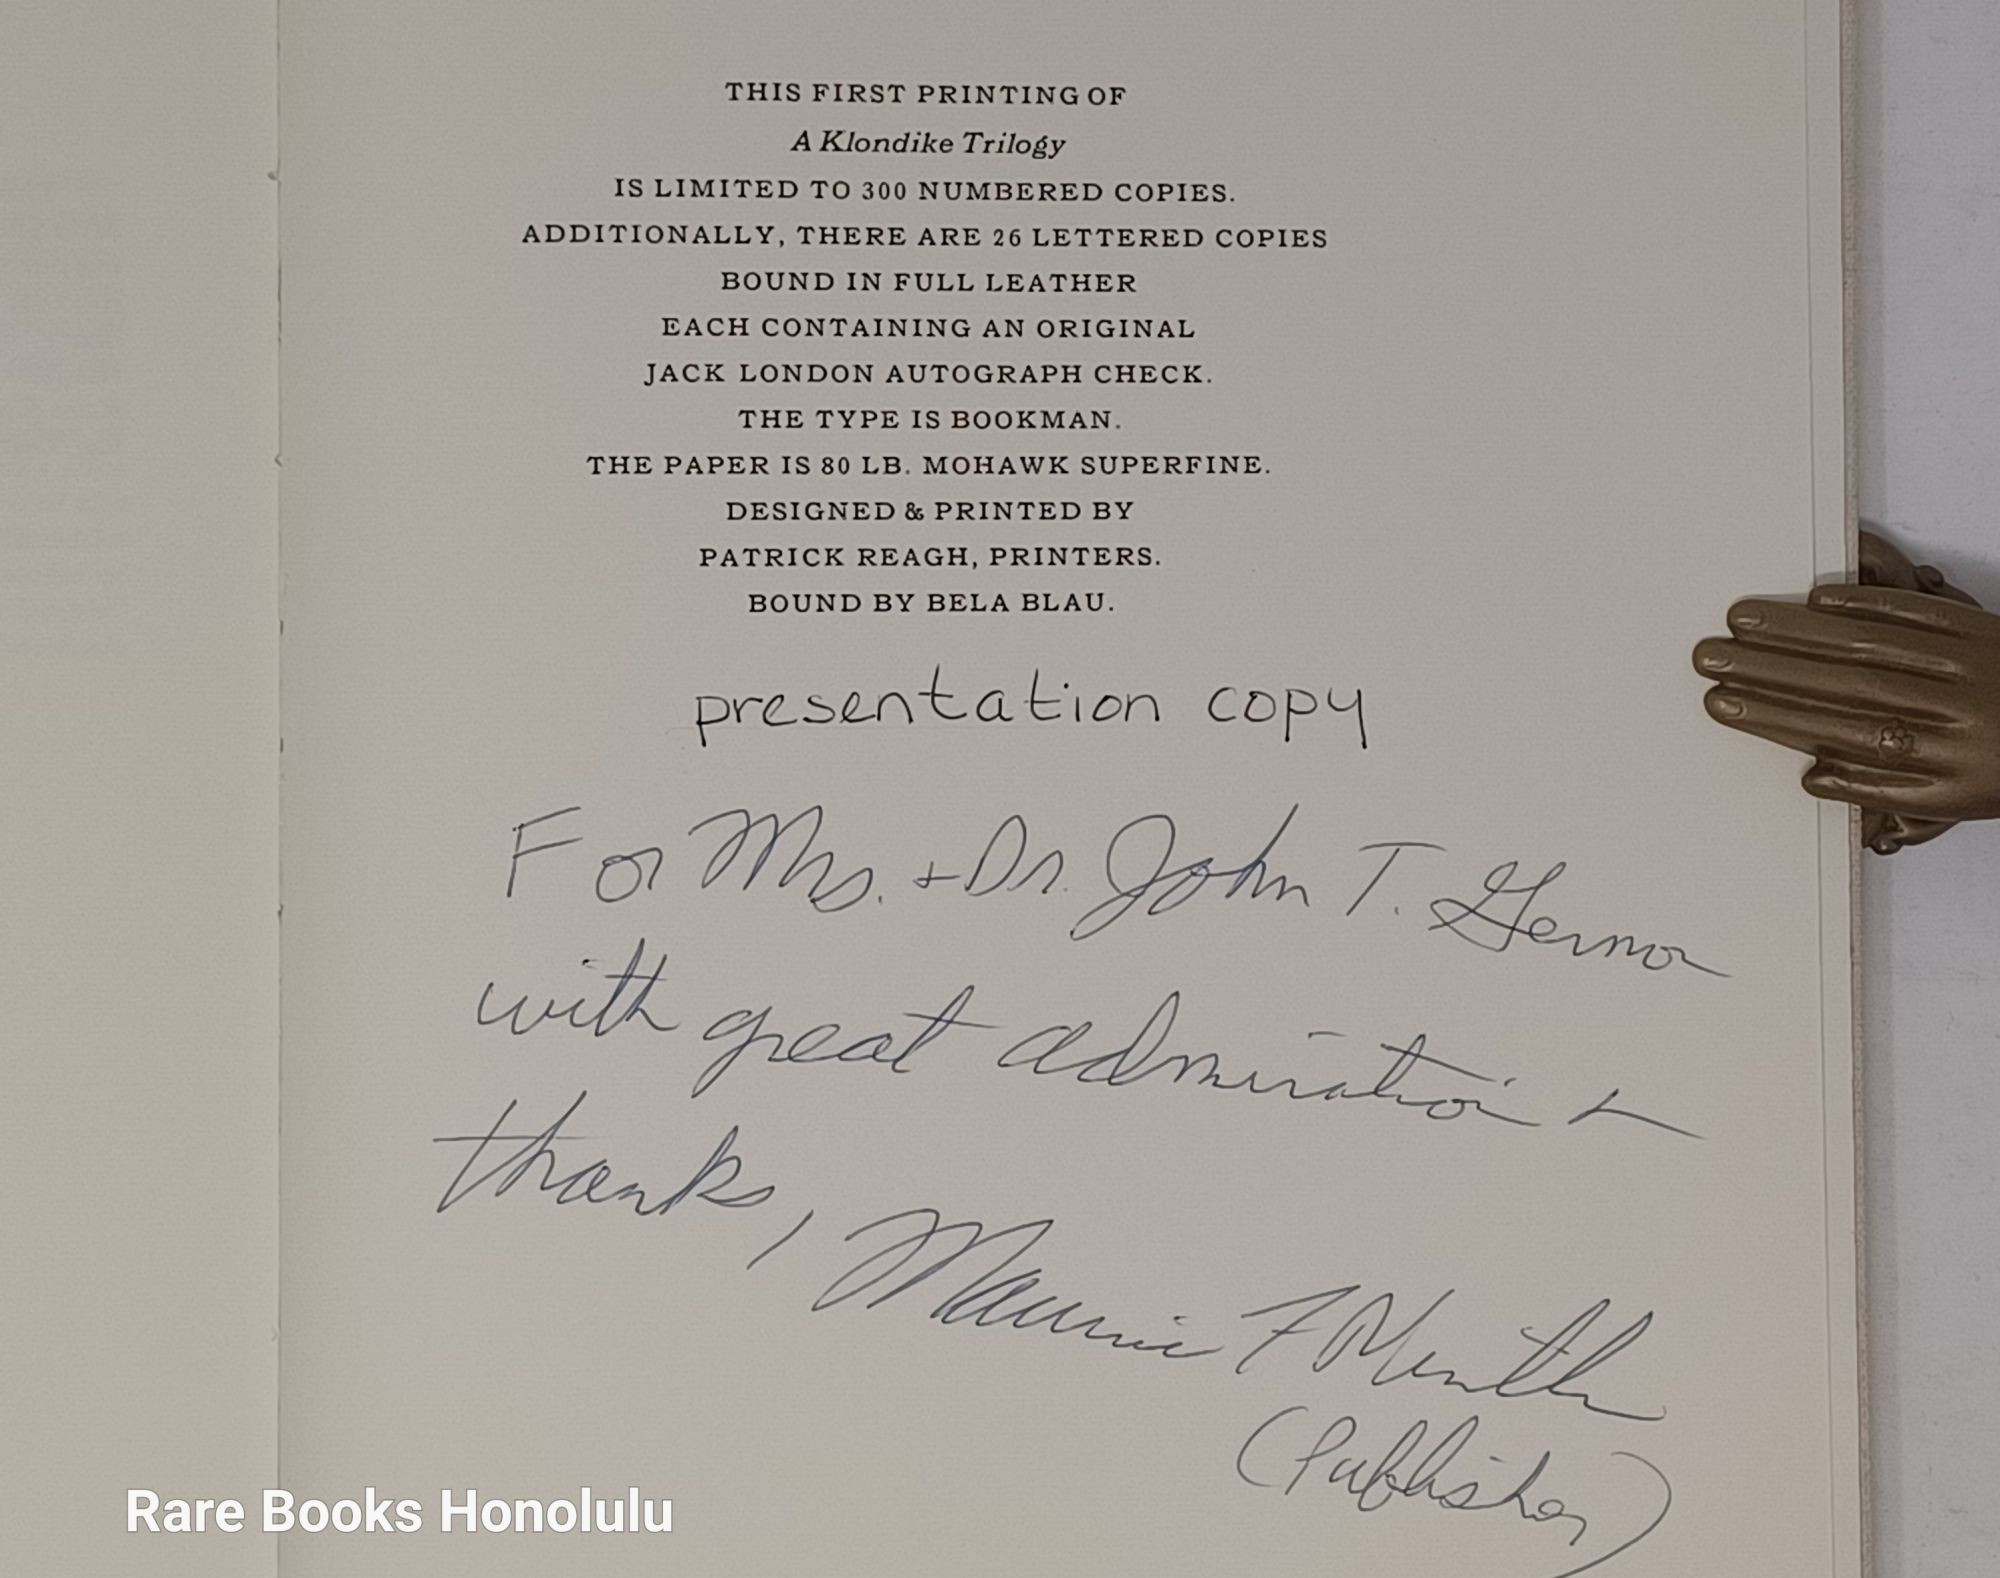 THIS FIRST PRINTING OF
A Klondike Trilogy
IS LIMITED TO 300 NUMBERED COPIES.
ADDITIONALLY, THERE ARE 26 LETTERED COPIES
BOUND IN FULL LEATHER
EACH CONTAINING AN ORIGINAL
JACK LONDON AUTOGRAPH CHECK.
THE TYPE IS BOOKMAN.
THE PAPER IS 80 LB. MOHAWK SUPERFINE.
DESIGNED & PRINTED BY
PATRICK REAGH, PRINTERS.
BOUND BY BELA BLAU.
presentation copy
For Mrs. + Dr. John T.
with great admiration +
thanks, Maurice F
(Publisher)
Rare Books Honolulu